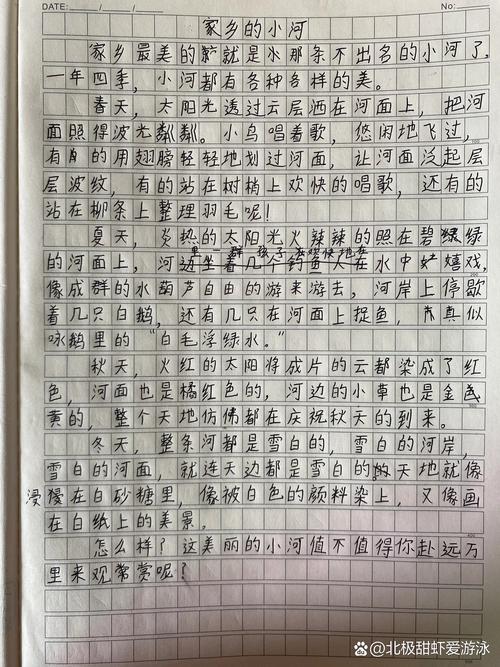 DATE: / / No:
家乡的小河
家乡最美的就是那条不出名的小河了，
一年四季，小河都有各种各样的美。
春天，太阳光透过云层洒在河面上，把河
面照得波光粼粼。小鸟唱着歌，悠闲地飞过，
有的用翅膀轻轻地划过河面，让河面泛起层
层波纹，有的站在树梢上欢快的唱歌，还有的
站在柳条上整理羽毛呢！
夏天，炎热的太阳光火辣辣的照在碧绿绿
的河面上，河里一群孩子在欢快地在水中嬉戏，
像成群的水葫芦自由的游来游去，河岸上停歇
着几只白鹅，还有几只在河面上捉鱼，真似
咏鹅里的“白毛浮绿水。”
秋天，火红的太阳将成片的云都染成了红
色，河面也是橘红色的，河边的小草也是金
黄的，整个天地仿佛都在庆祝秋天的到来。
冬天，整条河都是雪白的，雪白的河岸，
雪白的河面，就连天边都是雪白的，天地就像
浸在白砂糖里，像被白色的颜料染上，又像画
在白纸上的美景。
怎么样？这美丽的小河值不值得你赴远万
里来观赏呢？
百家号/北极甜虾爱游泳